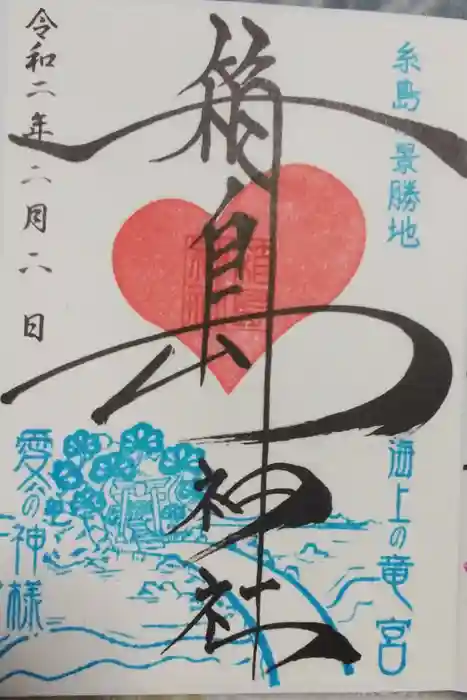 糸島 景勝地
海上の竜宮
箱島神社
愛の神様
令和二年二月六日